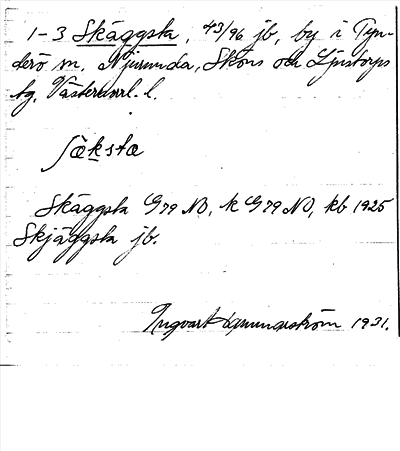 1-3 Skäggsta, 43/96 jb, by i Tyn-
derö sn, Njurunda, Sköns och Ljustorps
tg, Västernorrl. l.
ʃäksta
Skäggsta G79 NB, k G79 NO, kb 1925
Skjäggsta jb.
Ingvart Hammarström 1931.